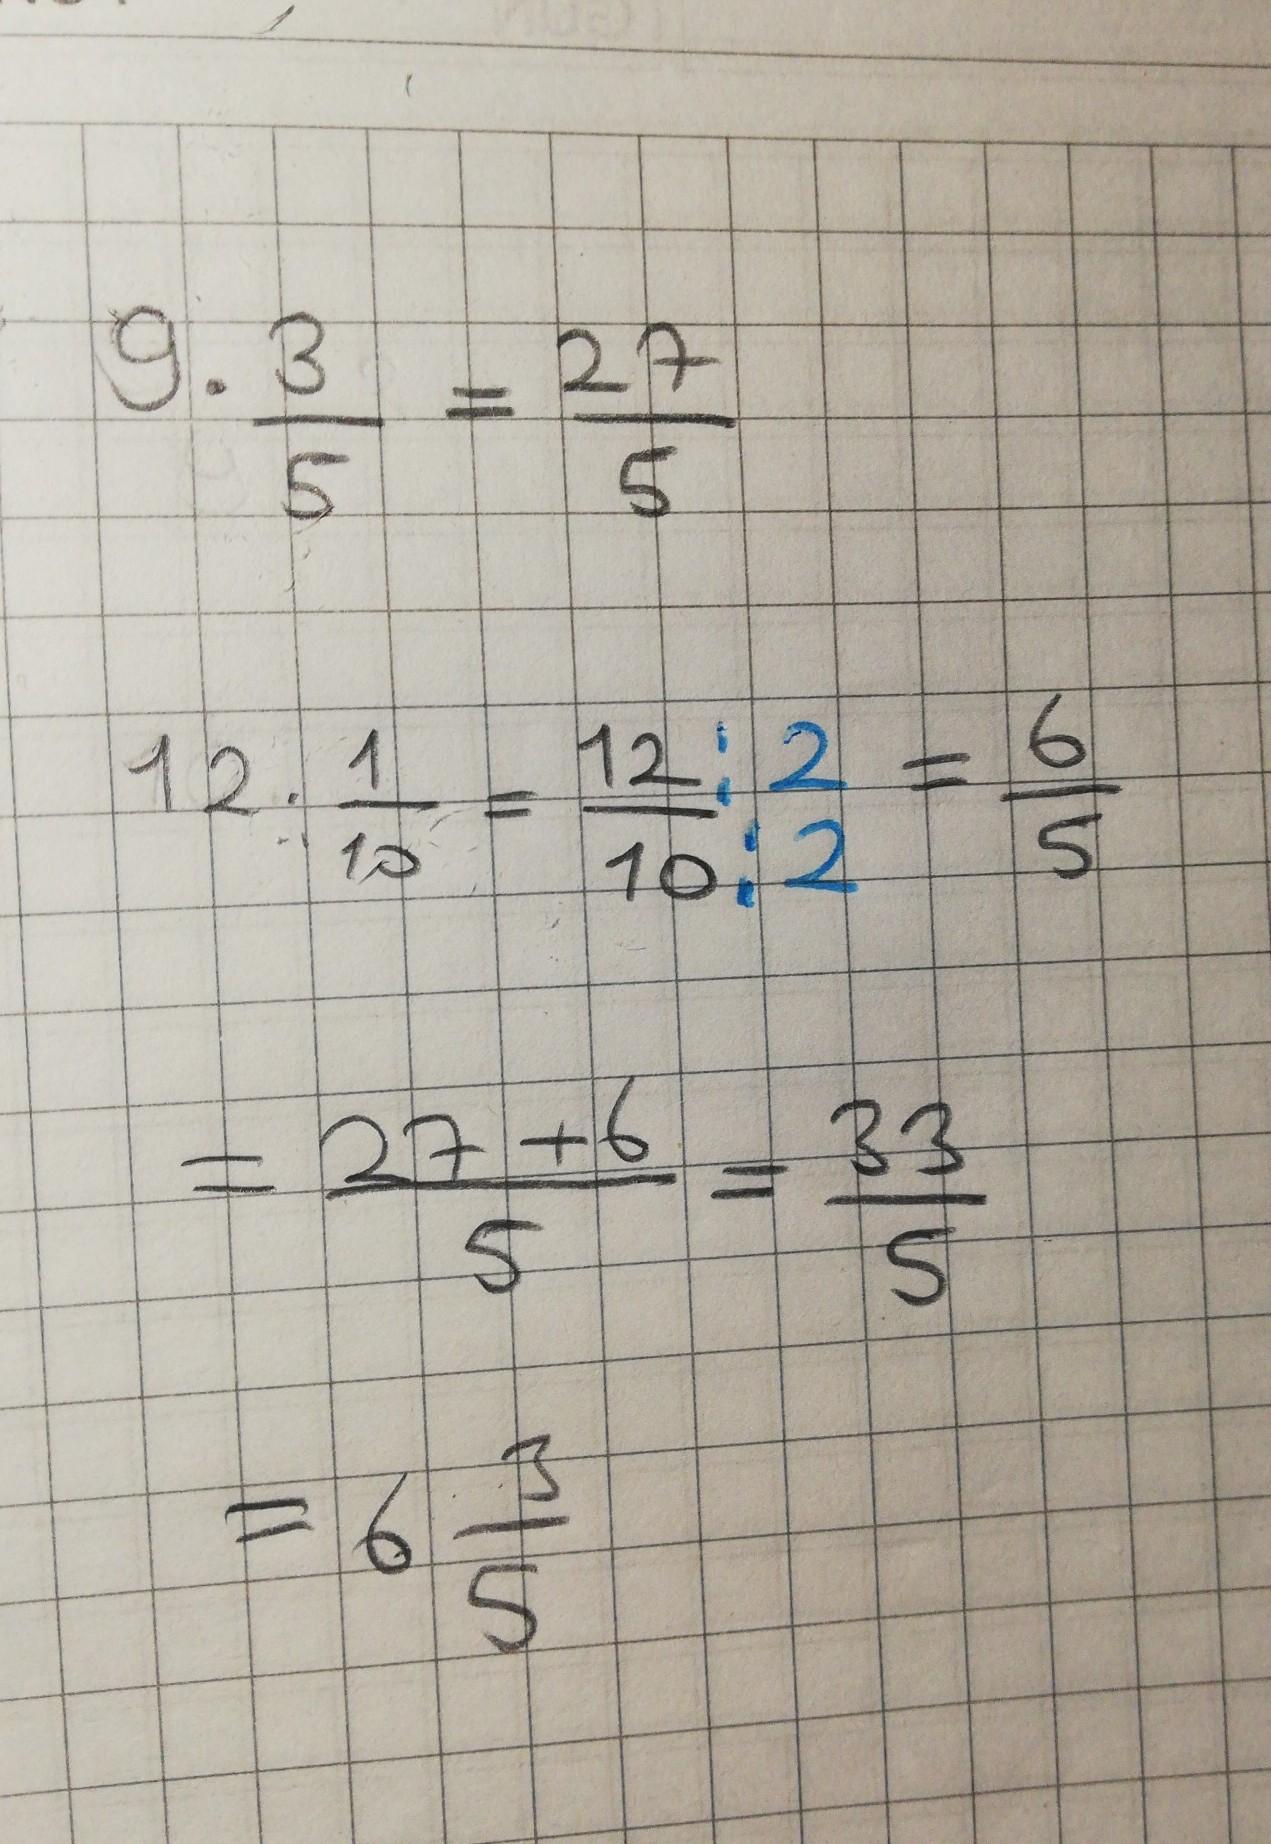 9 · 3/5 = 27/5
12 · 1/10 = 12:2/10:2 = 6/5
= 27+6/5 = 33/5
= 6 3/5